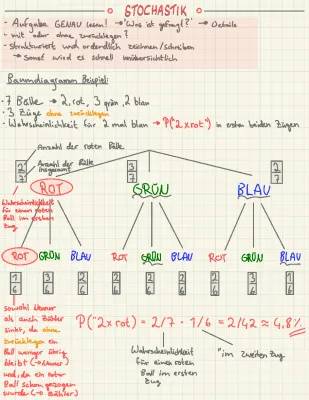 STOCHASTIK
- Aufgabe GENAU lesen! → 'Was ist gefragt?' → Details
- mit oder ohne zurücklegen?
- strukturiert und ordentlich zeichnen/schreiben
→ sonst wird es schnell unübersichtlich
Baumdiagramm Beispiel:
- 7 Bälle → 2 rot, 3 grün, 2 blau
- 3 Züge ohne zurücklegen
- Wahrscheinlichkeit für 2 mal blau → P("2 x rot") in ersten beiden Zügen
Anzahl der roten Bälle
Anzahl der Bälle insgesamt
2/7
3/7
2/7
ROT
GRÜN
BLAU
Wahrscheinlichkeit
für einen roten
Ball im ersten
Zug
ROT GRÜN BLAU ROT GRÜN BLAU ROT GRÜN BLAU
1/6 3/6 2/6 2/6 2/6 2/6 2/6 3/6 1/6
sowohl Nenner
als auch Zähler
sinkt, da ohne
zurücklegen ein
Ball weniger übrig
bleibt (→ Nenner)
und, da ein roter
Ball schon gezogen
wurde (→ Zähler)
P("2x rot) = 2/7 · 1/6 = 2/42 ≈ 4,8%
Wahrscheinlichkeit
für einen roten
Ball im ersten
Zug
" im zweiten Zug